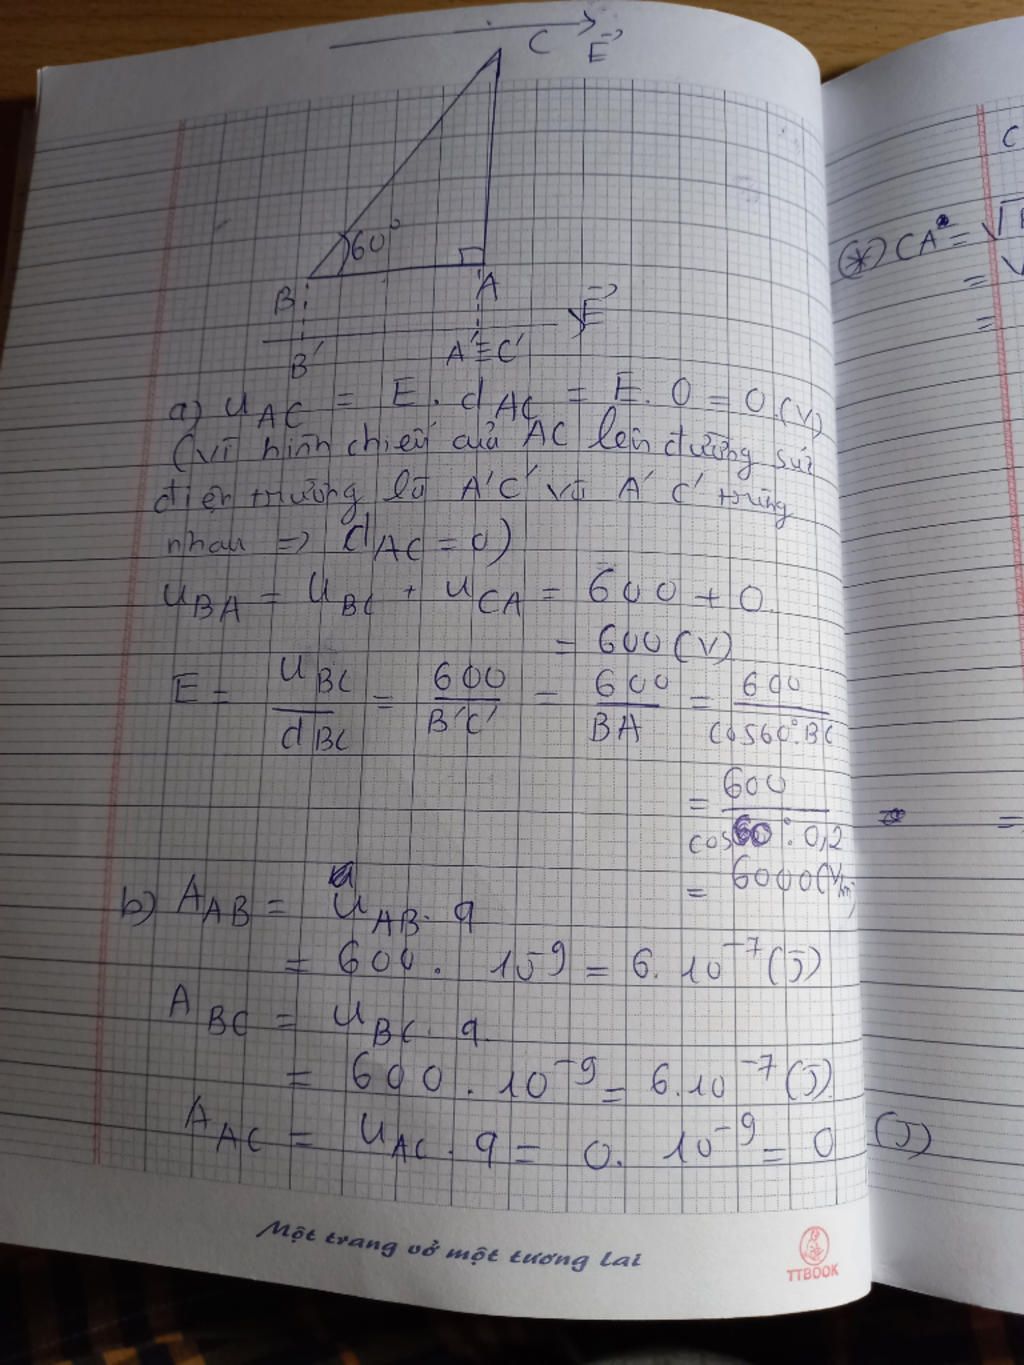 C E→
60°
B A
E→
B' A'≡C'
a) U_AC = E . d_AC = E. 0 = 0 (V)
(vì hình chiếu của AC lên đường sức
điện trường là A'C' và A' C' trùng
nhau => d_AC = 0)
U_BA = U_BC + U_CA = 600 + 0
= 600 (V)
E = U_BC / d_BC = 600 / B'C' = 600 / BA = 600 / cos60°.BC
= 600 / cos60°.0,2
= 6000 (V/m)
b) A_AB = U_AB. q
= 600. 10^-9 = 6. 10^-7 (J)
A_BC = U_BC. q
= 600 . 10^-9 = 6.10^-7 (J)
A_AC = U_AC . q = 0. 10^-9 = 0 (J)
Một trang vở một tương lai
TTBOOK
C
(*) CA² = √
= √
=
=